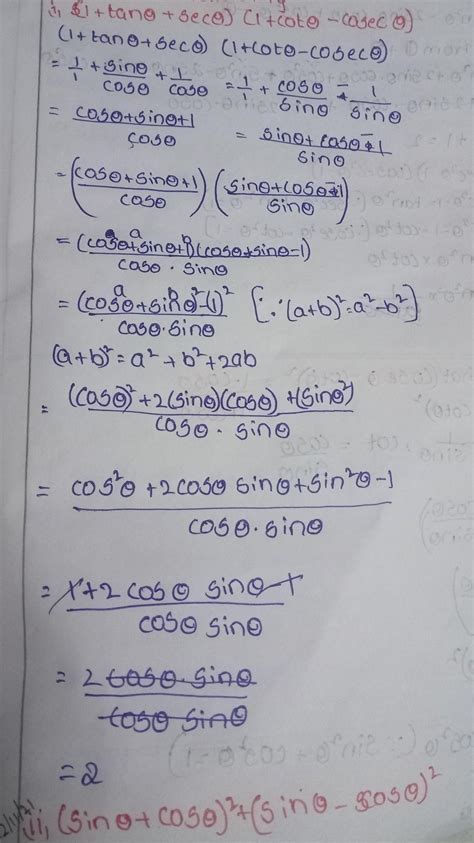 i, (1+tanθ+secθ) (1+cotθ-cosecθ)
(1+tanθ+secθ) (1+cotθ-cosecθ)
= 1/1 + sinθ/cosθ + 1/cosθ = 1/1 + cosθ/sinθ - 1/sinθ
= cosθ+sinθ+1/cosθ = sinθ+cosθ-1/sinθ
= (cosθ+sinθ+1/cosθ) (sinθ+cosθ-1/sinθ)
= (cosθ+sinθ+1)(cosθ+sinθ-1)/cosθ·sinθ
= (cosθ+sinθ)²-(1)²/cosθ·sinθ [∵(a+b)²=a²-b²]
(a+b)²=a²+b²+2ab
= (cosθ)²+2(sinθ)(cosθ)+(sinθ²)/cosθ·sinθ
= cos²θ+2cosθ sinθ+sin²θ-1/cosθ·sinθ
= 1+2cosθ sinθ-1/cosθ sinθ
= 2cosθ·sinθ/cosθ sinθ
=2
ii, (sinθ+cosθ)²+(sinθ-cosθ)²